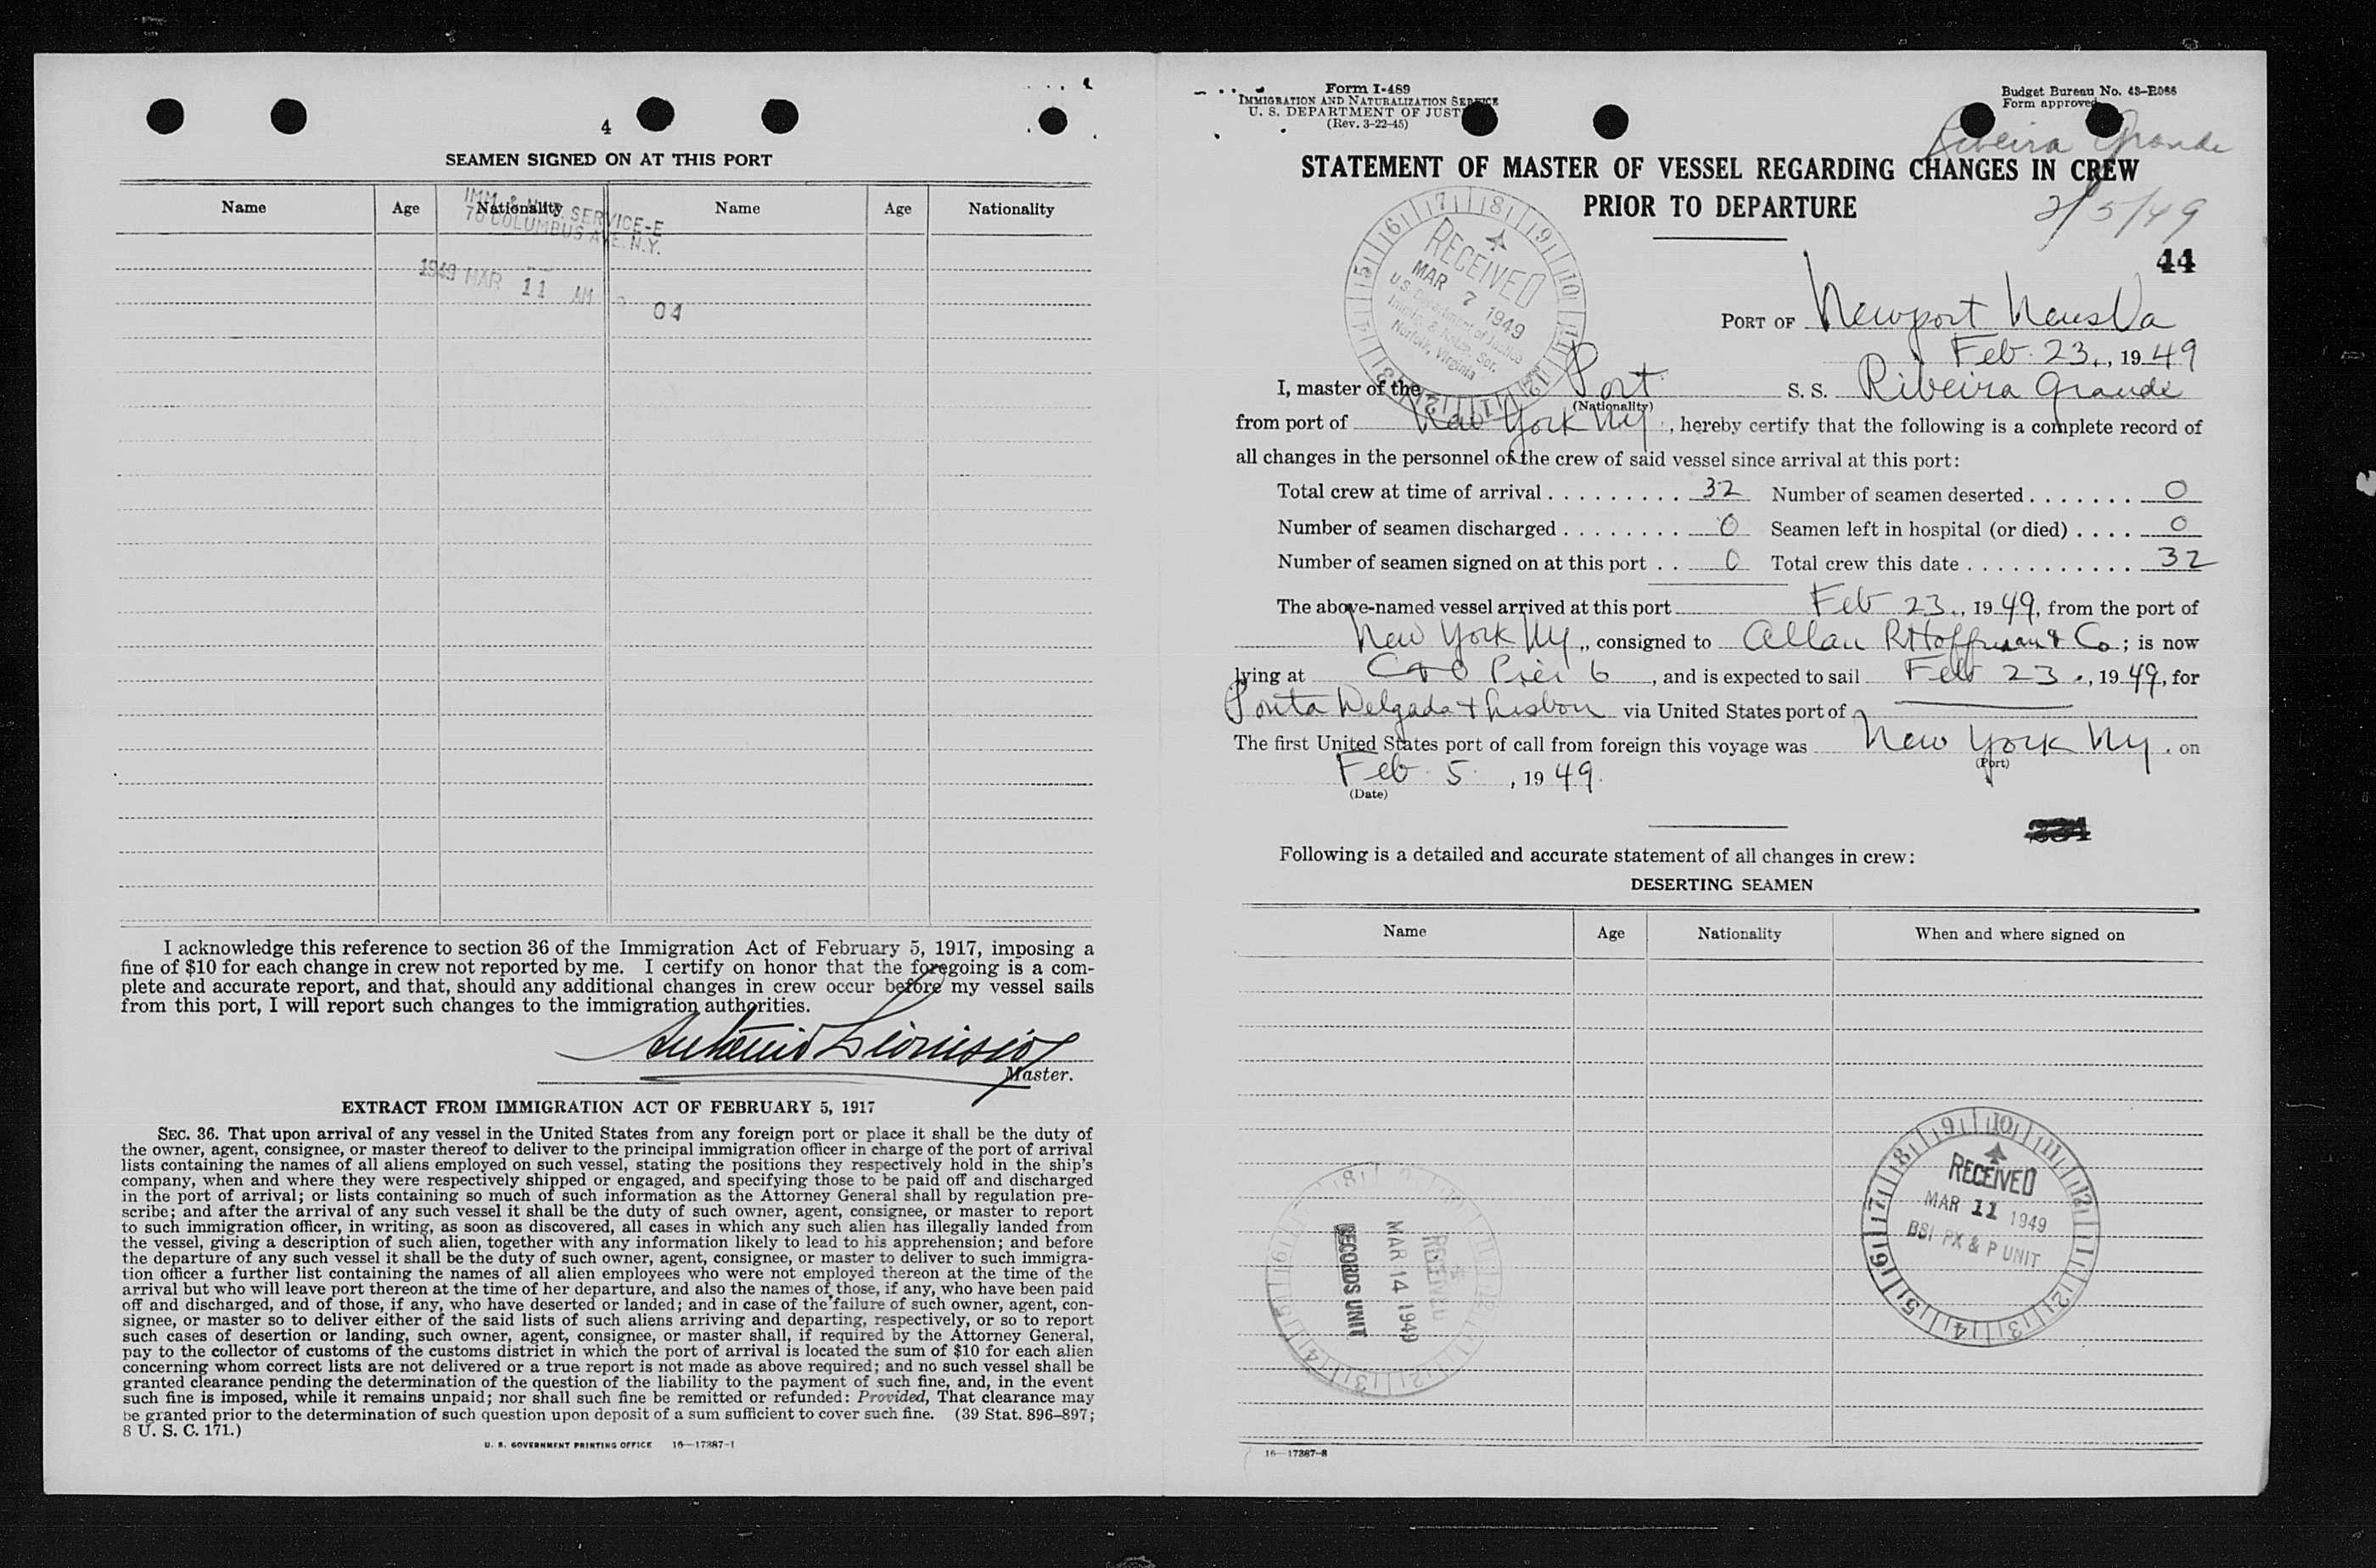 4
SEAMEN SIGNED ON AT THIS PORT
Name Age Nationality Name Age Nationality
IMM. & SERVICE-E
70 COLUMBUS AVE. N.Y.
1949 MAR 11 AM 04
I acknowledge this reference to section 36 of the Immigration Act of February 5, 1917, imposing a
fine of $10 for each change in crew not reported by me. I certify on honor that the foregoing is a com-
plete and accurate report, and that, should any additional changes in crew occur before my vessel sails
from this port, I will report such changes to the immigration authorities.
Antonio Dionisio
Master.
EXTRACT FROM IMMIGRATION ACT OF FEBRUARY 5, 1917
SEC. 36. That upon arrival of any vessel in the United States from any foreign port or place it shall be the duty of
the owner, agent, consignee, or master thereof to deliver to the principal immigration officer in charge of the port of arrival
lists containing the names of all aliens employed on such vessel, stating the positions they respectively hold in the ship's
company, when and where they were respectively shipped or engaged, and specifying those to be paid off and discharged
in the port of arrival; or lists containing so much of such information as the Attorney General shall by regulation pre-
scribe; and after the arrival of any such vessel it shall be the duty of such owner, agent, consignee, or master to report
to such immigration officer, in writing, as soon as discovered, all cases in which any such alien has illegally landed from
the vessel, giving a description of such alien, together with any information likely to lead to his apprehension; and before
the departure of any such vessel it shall be the duty of such owner, agent, consignee, or master to deliver to such immigra-
tion officer a further list containing the names of all alien employees who were not employed thereon at the time of the
arrival but who will leave port thereon at the time of her departure, and also the names of those, if any, who have been paid
off and discharged, and of those, if any, who have deserted or landed; and in case of the failure of such owner, agent, con-
signee, or master so to deliver either of the said lists of such aliens arriving and departing, respectively, or so to report
such cases of desertion or landing, such owner, agent, consignee, or master shall, if required by the Attorney General,
pay to the collector of customs of the customs district in which the port of arrival is located the sum of $10 for each alien
concerning whom correct lists are not delivered or a true report is not made as above required; and no such vessel shall be
granted clearance pending the determination of the question of the liability to the payment of such fine, and, in the event
such fine is imposed, while it remains unpaid; nor shall such fine be remitted or refunded: Provided, That clearance may
be granted prior to the determination of such question upon deposit of a sum sufficient to cover such fine. (39 Stat. 896–897;
8 U. S. C. 171.)
U. S. GOVERNMENT PRINTING OFFICE 16—17387-1
Form I-489
IMMIGRATION AND NATURALIZATION SERVICE
U. S. DEPARTMENT OF JUST
(Rev. 3-22-45)
Budget Bureau No. 43-R066
Form approved
Ribeira Grande
STATEMENT OF MASTER OF VESSEL REGARDING CHANGES IN CREW
PRIOR TO DEPARTURE
2/5/49
44
RECEIVED
MAR 7 1949
U S Department of Justice
Immig. & Natzn. Ser.
Norfolk, Virginia
PORT OF Newport News Va
Feb. 23., 19 49
I, master of the Port S. S. Ribeira Grande
(Nationality)
from port of New York NY, hereby certify that the following is a complete record of
all changes in the personnel of the crew of said vessel since arrival at this port:
Total crew at time of arrival 32 Number of seamen deserted 0
Number of seamen discharged 0 Seamen left in hospital (or died) 0
Number of seamen signed on at this port 0 Total crew this date 32
The above-named vessel arrived at this port Feb 23., 19 49, from the port of
New York NY, consigned to Allan R Hoffman & Co; is now
lying at C & O Pier 6, and is expected to sail Feb 23., 19 49, for
Ponta Delgada & Lisbon via United States port of
The first United States port of call from foreign this voyage was New York NY. on
(Port)
Feb. 5, 19 49.
(Date)
Following is a detailed and accurate statement of all changes in crew:
DESERTING SEAMEN
Name Age Nationality When and where signed on
RECEIVED
MAR 11 1949
BSI PX & P UNIT
RECEIVED
MAR 14 1949
RECORDS UNIT
16—17387-8